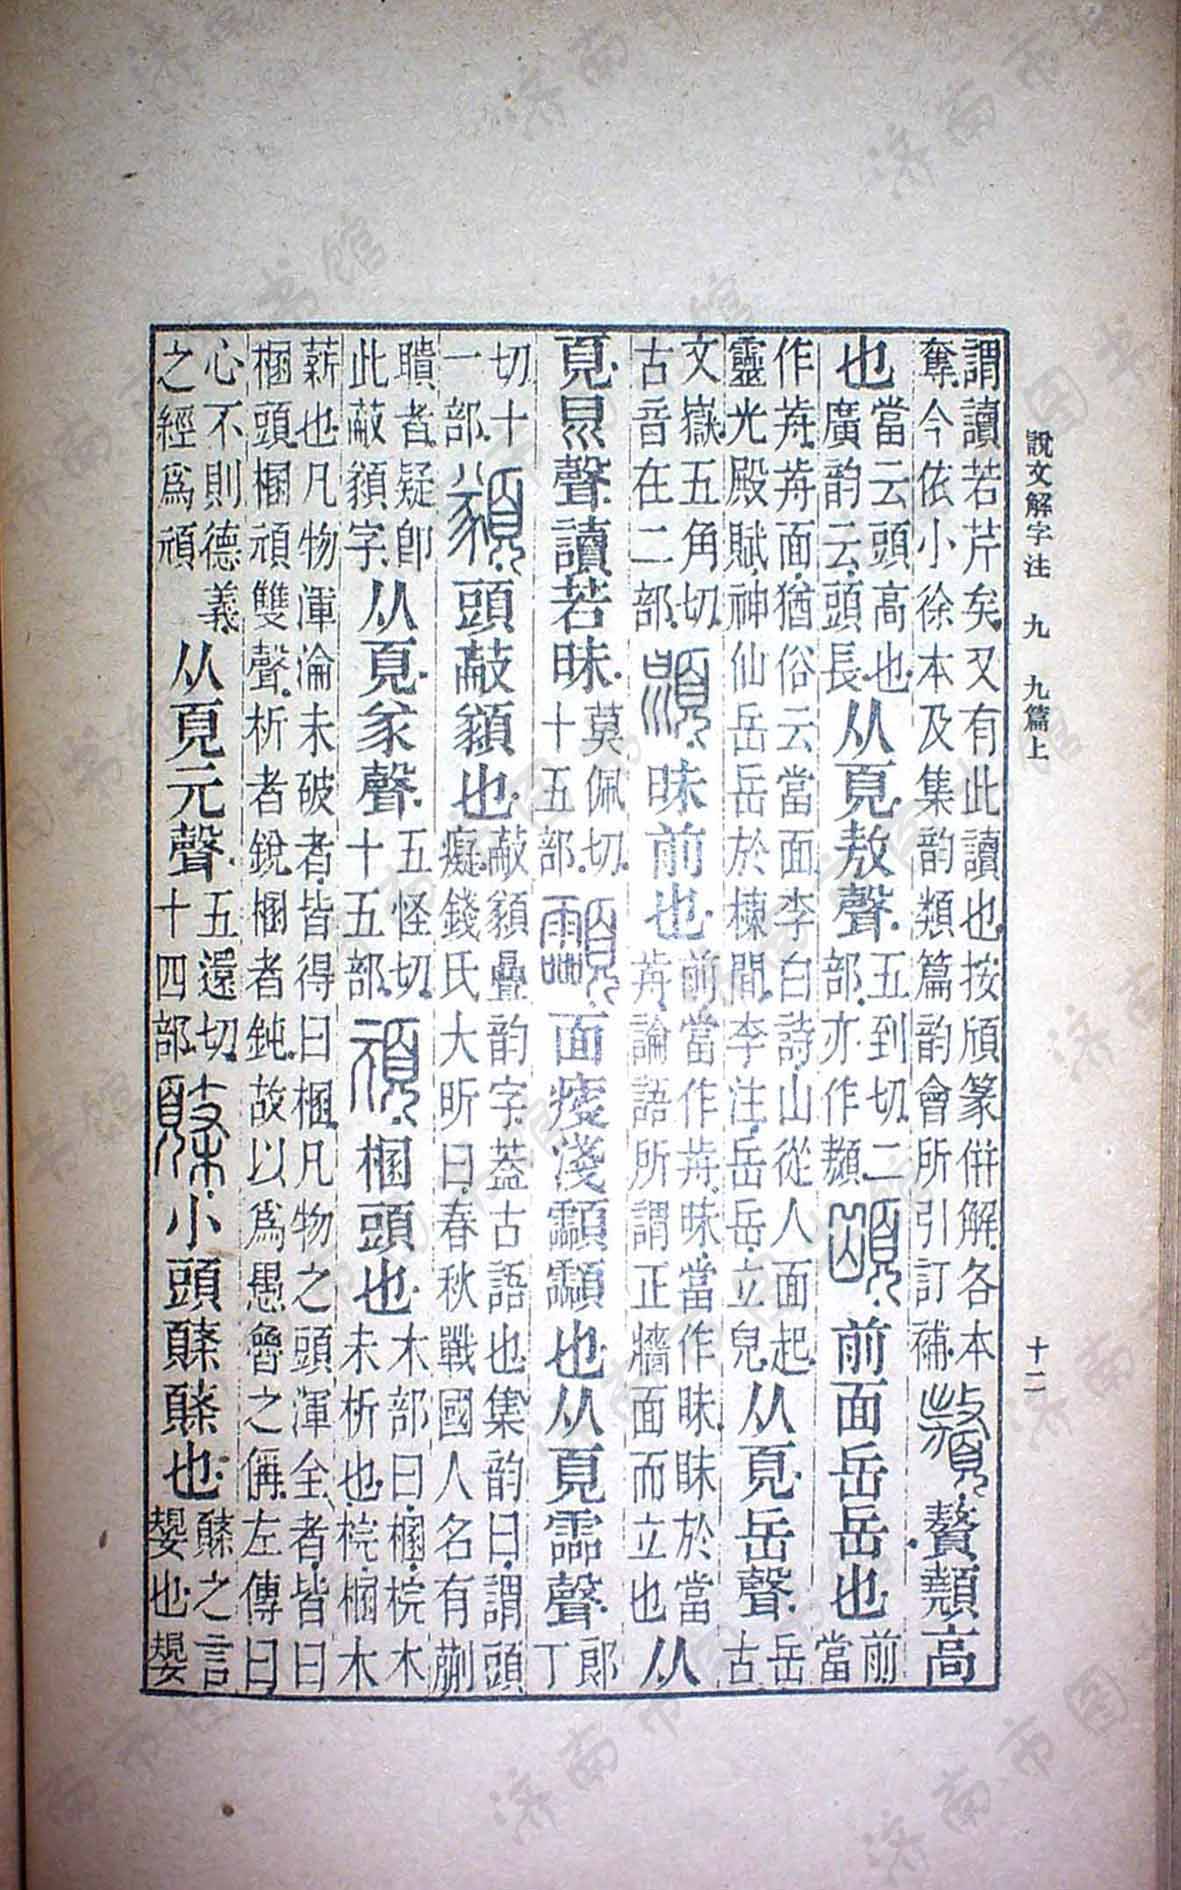 說文解字注 九 九篇上 十二
謂讀若芹矣又有此讀也按頎篆倂解各本
奪今依小徐本及集韵類篇韵會所引訂補
贅顤高
也
當云頭高也
廣韵云頭長
从頁敖聲
五到切二
部亦作
前面岳岳也
前
當
作歬歬面猶俗云當面李白詩山從人面起
靈光殿賦神仙岳岳於棟間李注岳岳立皃
从頁岳聲
岳
古
文嶽五角切
古音在二部
昧前也
前當作歬昧當作眜眜於當
歬論語所謂正牆面而立也
从
頁㫐聲讀若昧
莫佩切
十五部
面瘦淺𩕳𩕳也从頁霝聲
郎
丁
切十
一部
頭蔽䫥也
蔽䫥疊韵字葢古語也集韵曰謂頭
癡錢氏大昕曰春秋戰國人名有蒯
聵者疑卽
此蔽䫥字
从頁豙聲
五怪切
十五部
頑
棞頭也
木部曰棞梡木
未析也梡棞木
薪也凡物渾淪未破者皆得曰棞凡物之頭渾全者皆曰
棞頭棞頑雙聲析者銳棞者鈍故以爲愚魯之偁左傳曰
心不則德義
之經爲頑
从頁元聲
五還切
十四部
䫌
小頭䫌䫌也
䫌之言
嫢也嫢